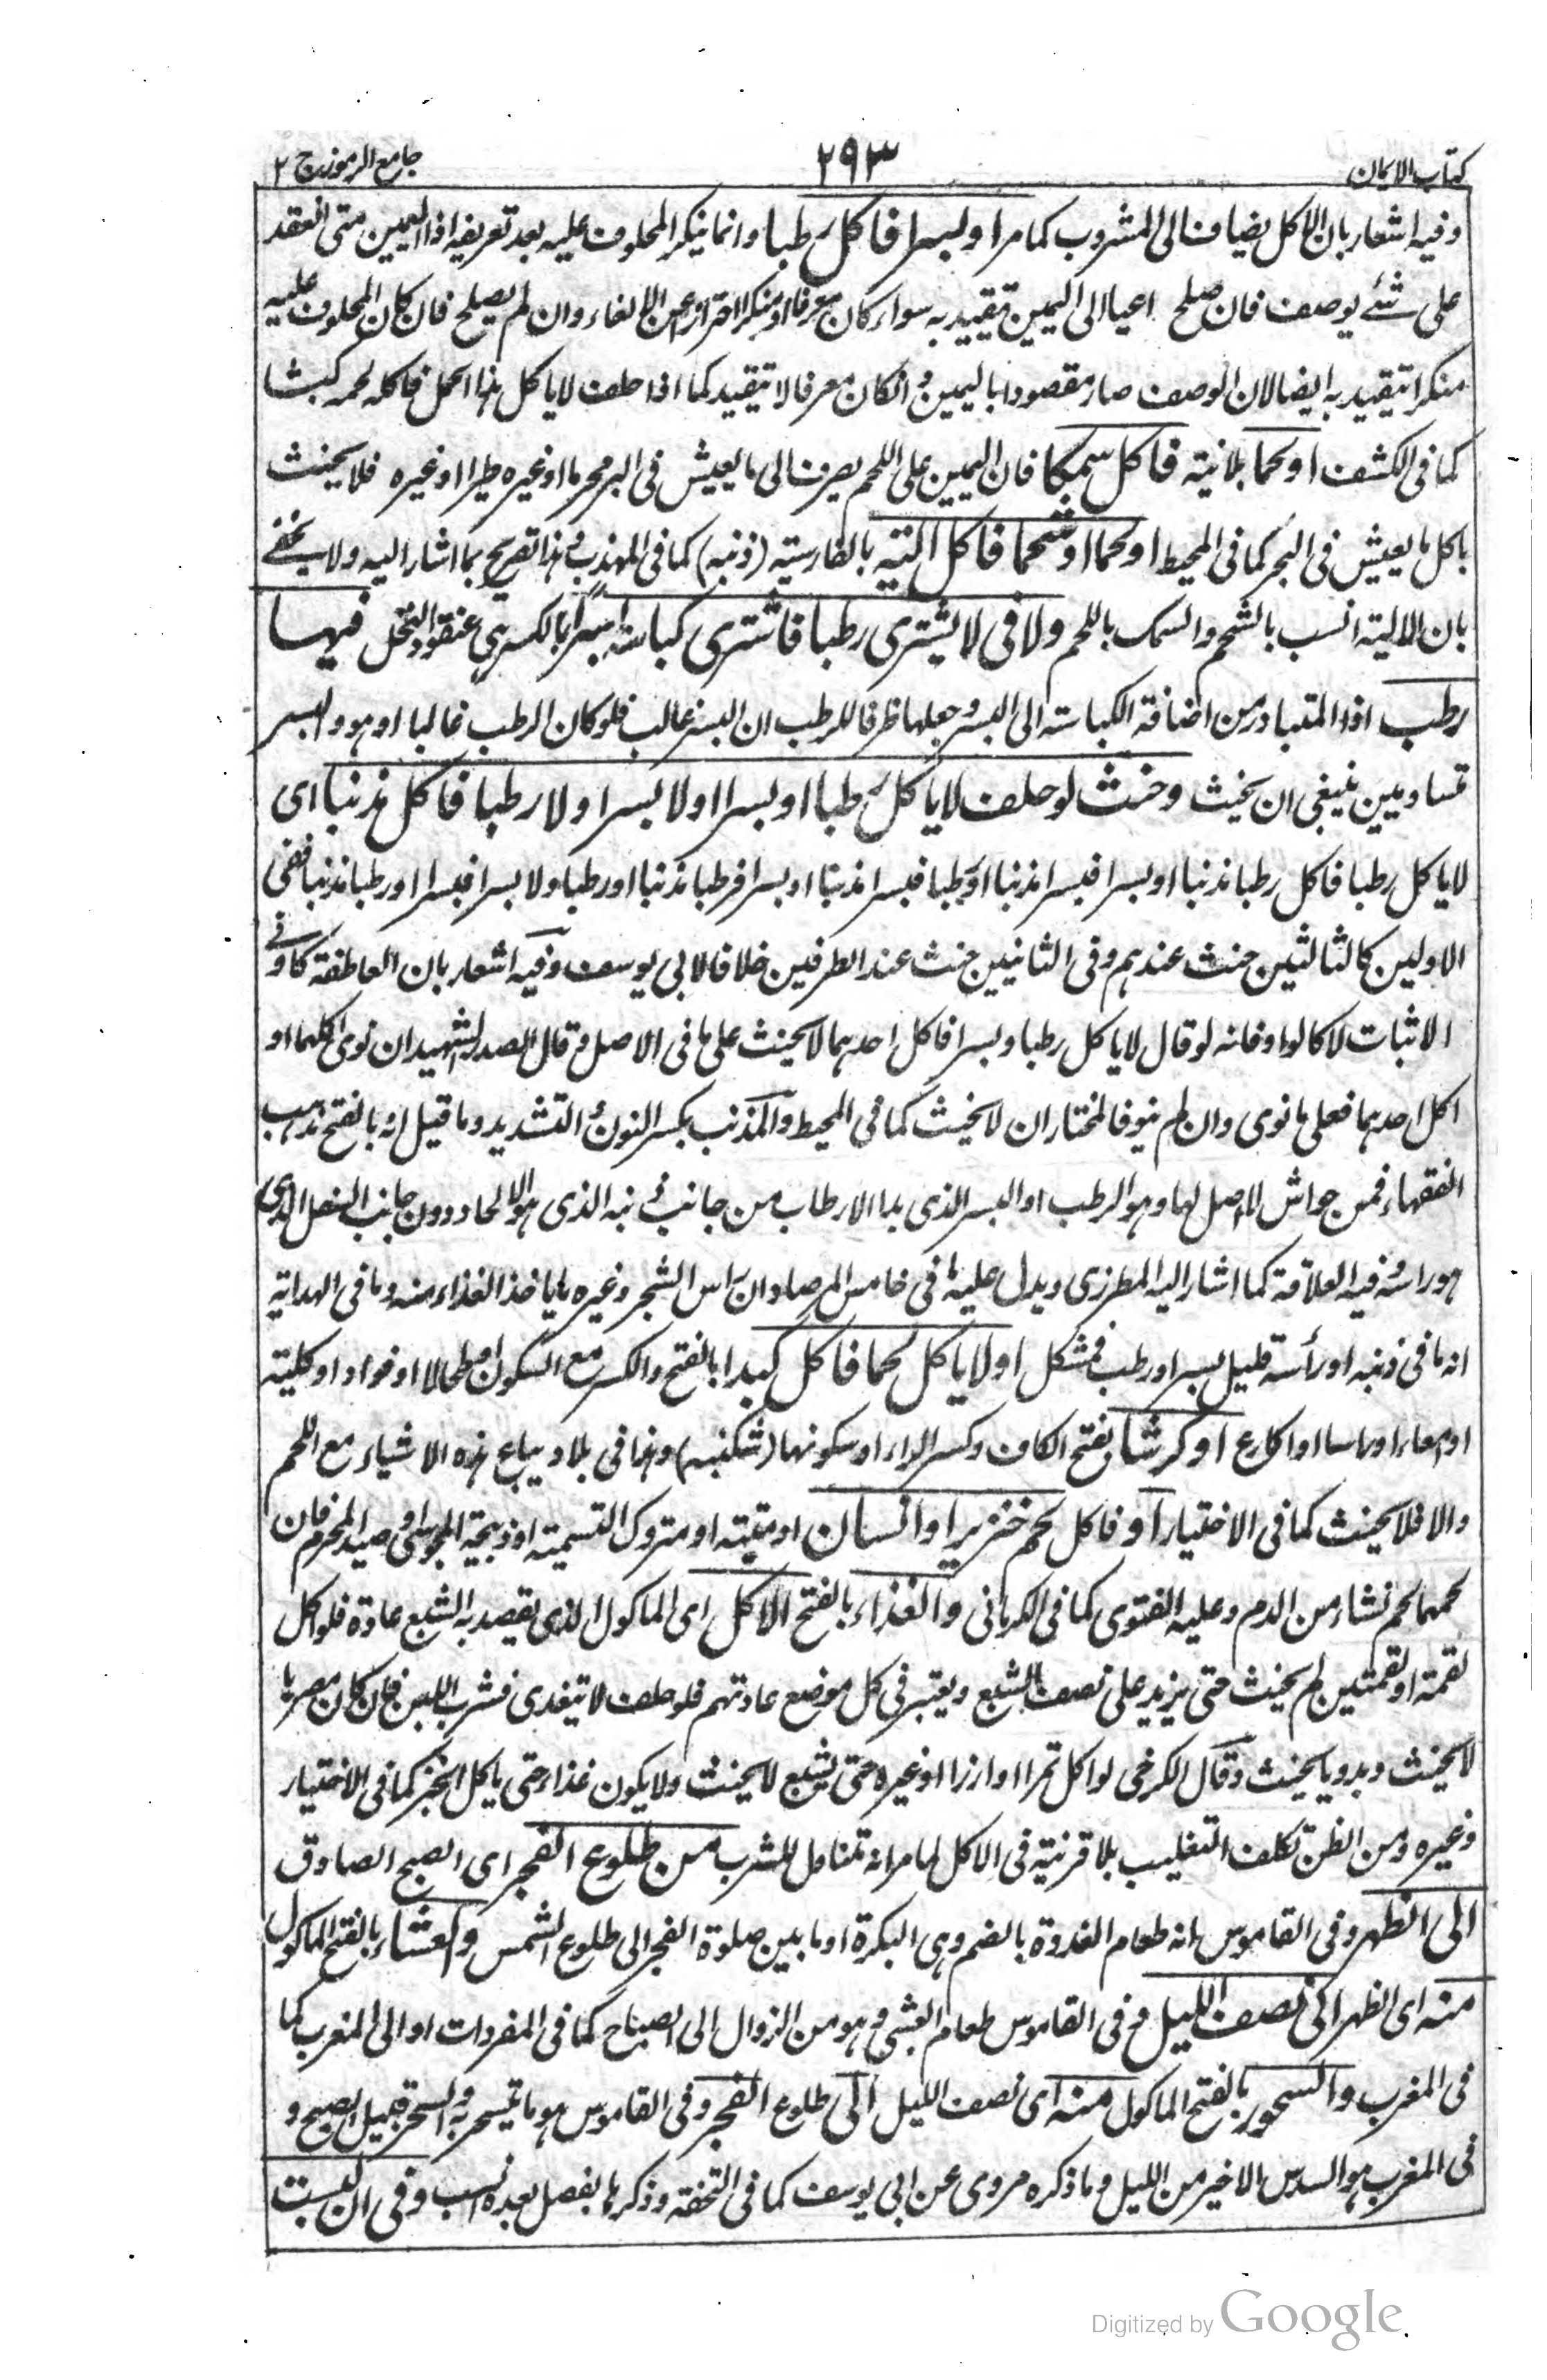 كتاب الايمان
٢٩٣
جامع الرموز ج ٢
وفيه اشعار بان الاكل يضاف الى المشروب كما مر او بسرا فاكل رطبا وانما ينكر المحلوف عليه بعد تعريفه اذ اليمين متى انعقد
على شئ يوصف فان صلح داعيا الى اليمين تقييد به سواء كان معرفا او منكرا احترازا عن الالغاء وان لم يصلح فان كان المحلوف عليه
منكرا تقييد به ايضا لان الوصف صار مقصودا باليمين وان كان معرفا لا تقييد كما اذا حلف لا ياكل هذا الحمل فاكله لحمه كبشا
كما فى الكشف او لحما بلا نية فاكل سمكا فان اليمين على اللحم يصرف الى ما يعيش فى البر محرما او غيره طيرا او غيره فلا يحنث
باكل ما يعيش فى البحر كما فى المحيط او لحما او شحما فاكل الية بالفارسية (دنبه) كما فى المهذب وهذا تصريح بما اشار اليه ولا يخفى
بان الالية انسب بالشحم والسمك باللحم ولا فى لا يشترى رطبا فاشترى كباسة بسر بالكسر اى عنقود النخل فيها
رطب اذ المتبادر من اضافة الكباسة الى البسر وجعلها ظرفا للرطب ان البسر غالب فلو كان الرطب غالبا او هو والبسر
متساويين ينبغى ان يحنث وحنث لو حلف لا ياكل رطبا او بسرا او لا بسرا ولا رطبا فاكل مذنبا اى
لا ياكل رطبا فاكل رطبا مذنبا او بسرا فبسرا مذنبا او رطبا فبسرا مذنبا او بسرا فرطبا مذنبا او رطبا ولا بسرا فبسرا او رطبا مذنبا ففى
الاولين كالثالثين حنث عندهم وفى الثانيين حنث عند الطرفين خلافا لابى يوسف وفيه اشعار بان العاطفة كاو فى
الاثبات لا كالواو فانه لو قال لا ياكل رطبا وبسرا فاكل احدهما لا يحنث على ما فى الاصل وقال الصدر الشهيد ان نوى اكلهما او
اكل احدهما فعلى ما نوى وان لم ينو فالمختار ان لا يحنث كما فى المحيط والمذنب بكسر النون المشددة وما قيل انه بالفتح مذهب
الفقهاء فمن حواش لا اصل لها وهو الرطب او البسر الذى بدا الارطاب من جانب ذنبه الذى هو دون جانب الذى
هو راسه فيه العلاقة كما اشار اليه المطرزى ويدل عليه ما فى خامس المرصاد ان راس الشجر وغيره ما ياخذ الغذاء منه وما فى الهداية
انه ما فى ذنبه او رأسه قليل بسر او رطب فمشكل او لا ياكل لحما فاكل كبدا بالفتح والكسر مع السكون او طحالا او فوادا او كلية
او معاء او راسا او اكارع او كرشا بفتح الكاف وكسر الراء او سكونها (شكنبه) وهذا فى بلاد يباع هذه الاشياء مع اللحم
والا فلا يحنث كما فى الاختيار او فاكل لحم خنزير او انسان او ميتة او متروك التسمية او ذبيحة المجوسى او صيد المحرم فان
لحمها لحم نشاء من الدم وعليه الفتوى كما فى الكرمانى والغذاء بالفتح الاكل اى الماكول الذى يقصد به الشبع عادة فلو اكل
لقمة او لقمتين لم يحنث حتى يزيد على نصف الشبع ويعتبر فى كل موضع عادتهم فلو حلف لا يتغدى فشرب اللبن فان كان مصريا
لا يحنث وبدويا يحنث وقال الكرخى لو اكل تمرا او ارزا او غيره حتى يشبع لا يحنث ولا يكون غذاء حتى ياكل الخبز كما فى الاختيار
وغيره ومن الظن تكلف التغليب بلا قرينة فى الاكل لما مر انه تناول للشرب من طلوع الفجر اى الصبح الصادق
الى الظهر وفى القاموس انه طعام الغدوة بالضم وهى البكرة او ما بين صلوة الفجر الى طلوع الشمس والعشاء بالفتح الماكول
منه اى الظهر الى نصف الليل وفى القاموس طعام العشى وهو من الزوال الى الصباح كما فى المفردات او الى المغرب كما
فى المغرب والسحور بالفتح الماكول منه اى نصف الليل الى طلوع الفجر وفى القاموس هو ما يتسحر به والسحر قبيل الصبح و
فى المغرب هو السدس الاخير من الليل وما ذكره مروى عن ابى يوسف كما فى التحفة وذكرها بفصل بعده انسب وفى ان لبست
Digitized by Google